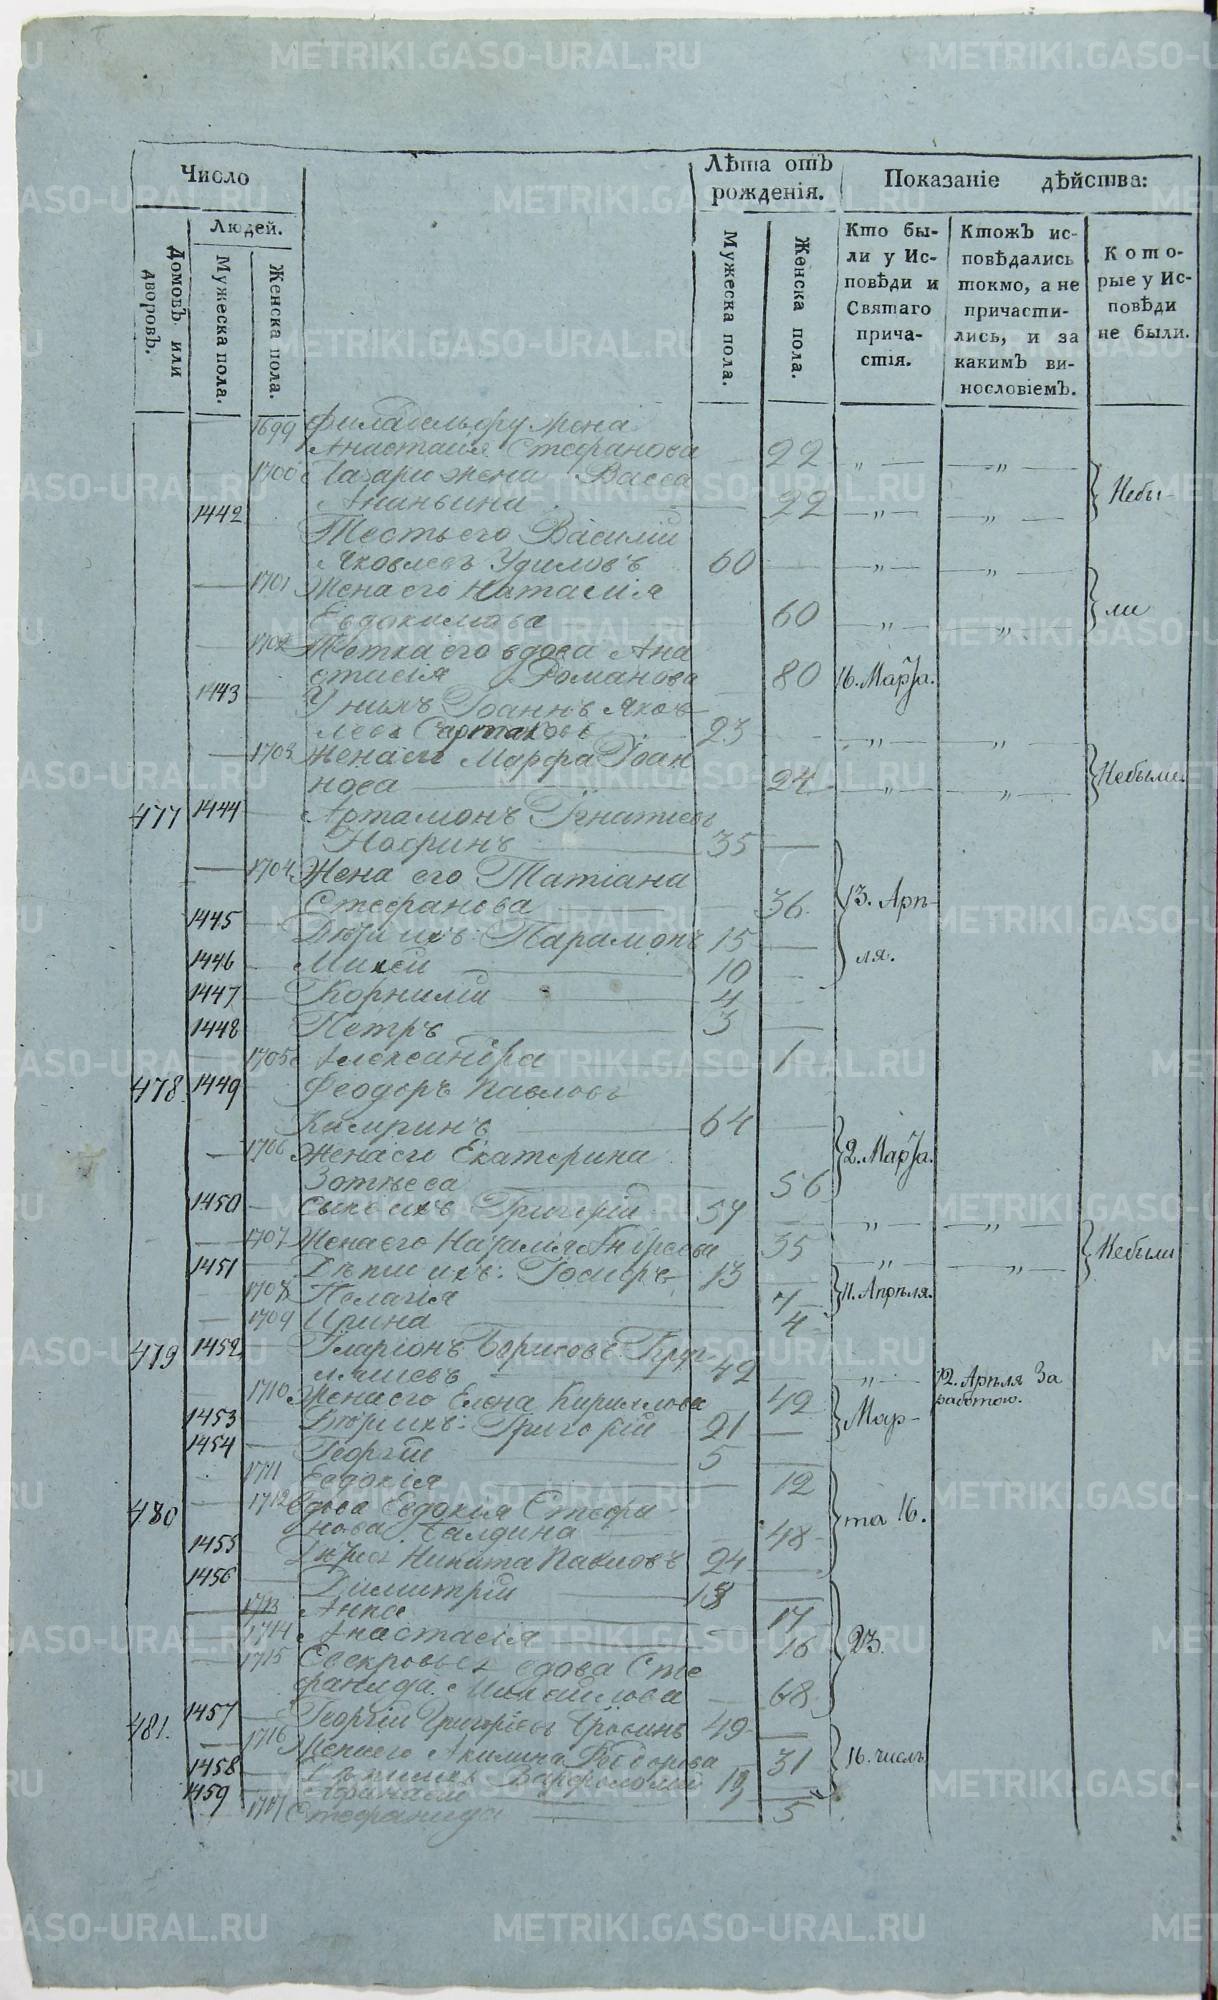 Число
Лѣта отъ рожденія.
Показаніе дѣйства:
Домовъ или дворовъ.
Людей.
Мужеска пола.
Женска пола.
Мужеска пола.
Женска пола.
Кто бы-
ли у Ис-
повѣди и
Святаго
прича-
стія.
Ктожъ ис-
повѣдались
токмо, а не
причасти-
лись, и за
какимъ ви-
нословіемъ.
Кото-
рые у Ис-
повѣди
не были.
1699 Филадельфу жена
Анастасія Стефанова 22 „ „
1700 жена Васса Небы-
Ананьина 22 „ „
1442 Тесть его Василій
Яковлевъ Удиловъ 60 „ „
1701 Жена его Наталія
Евдокимова 60 „ „ ли
1702 Тетка его вдова Ана
стасія Романова 80 16. Марта.
1443 У нихъ Іоаннъ Яков
левъ Сартаковъ 23 „ „
1703 Жена его Марфа Іоан
нова 24 „ „ Небыли
477 1444 Артамонъ Игнатіевъ
35
1704 Жена его Татіана
Стефанова 36 13. Апрѣ-
1445 Дѣти ихъ: Парамонъ 15
ля.
1446 Михей 10
1447 Корнилій 4
1448 Петръ 3
1705 Александра 1
478 1449 Феодоръ Павловъ
64
1706 Жена его Екатерина 2. Марта.
Зотѣева 56
1450 Сынъ ихъ Григорій 37 „ „
1707 Жена его Наталія 35 „ „ Небыли
1451 Дѣти ихъ: Іосифъ 13
1708 Пелагія 7 11. Апрѣля.
1709 Ирина 4
479 1452 Иларіонъ Борисовъ
42 „ 12. Апрѣля За
работою.
1710 Жена его Елена Кириллова 42
1453 Дѣти ихъ: Григорій 21 Мар-
1454 Георгій 5
1711 Евдокія 12
480 1712 Вдова Евдокія Стефа
нова 48 та 16.
1455 Дѣти Никита Павловъ 24
1456 Димитрій 18
1713 Анна 17
1714 Анастасія 16 23.
1715 Свекровь вдова Сте
фанида Михайлова 68
481. 1457 Георгій Григоріевъ 49
1716 Жена его Акилина Феодорова 31 16. числъ
1458 Варфоломей
1459
1717 Стефанида 5
METRIKI.GASO-URAL.RU